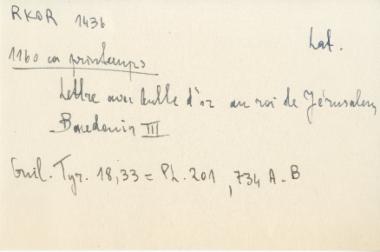 RKOR 1436
Lat.
1160 ca printemps
Lettre avec bulle d'or au roi de Jérusalem
Baudouin III
Guil. Tyr. 18,33 = PL. 201, 734 A-B